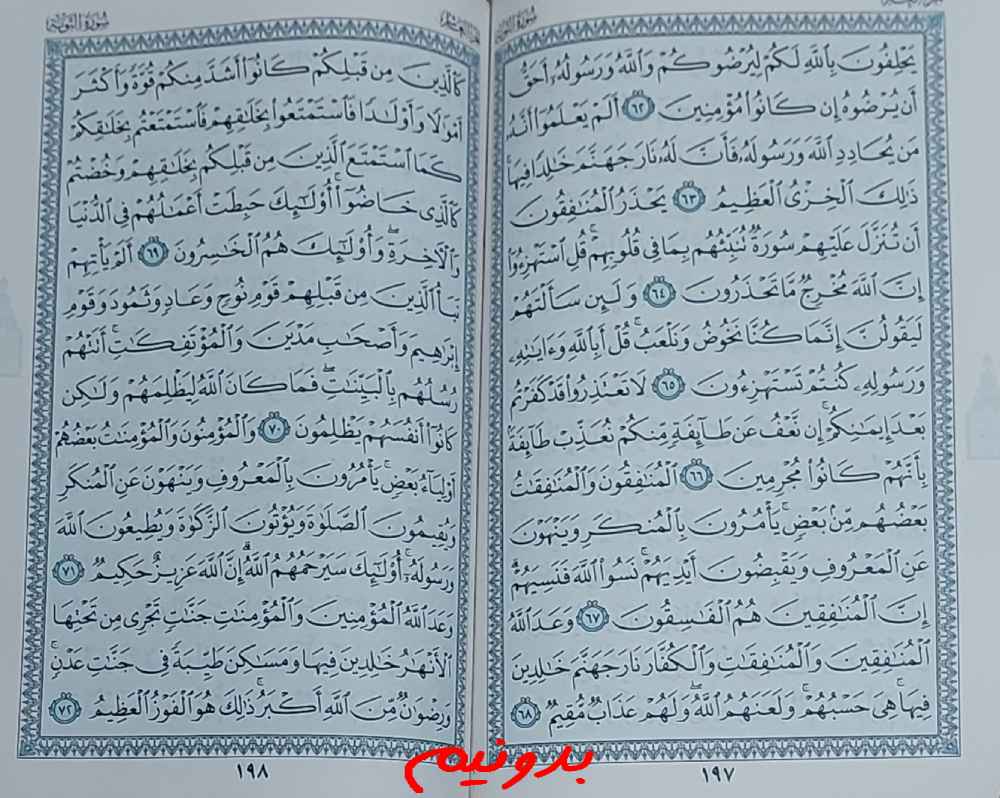 سُورَةُ التَّوْبَةِ
يَحْلِفُونَ بِٱللَّهِ لَكُمْ لِيُرْضُوكُمْ وَٱللَّهُ وَرَسُولُهُۥٓ أَحَقُّ
أَن يُرْضُوهُ إِن كَانُوا۟ مُؤْمِنِينَ ۝٦٢ أَلَمْ يَعْلَمُوٓا۟ أَنَّهُۥ
مَن يُحَادِدِ ٱللَّهَ وَرَسُولَهُۥ فَأَنَّ لَهُۥ نَارَ جَهَنَّمَ خَٰلِدًا فِيهَا ۚ
ذَٰلِكَ ٱلْخِزْىُ ٱلْعَظِيمُ ۝٦٣ يَحْذَرُ ٱلْمُنَٰفِقُونَ
أَن تُنَزَّلَ عَلَيْهِمْ سُورَةٌ تُنَبِّئُهُم بِمَا فِى قُلُوبِهِمْ ۚ قُلِ ٱسْتَهْزِءُوٓا۟
إِنَّ ٱللَّهَ مُخْرِجٌ مَّا تَحْذَرُونَ ۝٦٤ وَلَئِن سَأَلْتَهُمْ
لَيَقُولُنَّ إِنَّمَا كُنَّا نَخُوضُ وَنَلْعَبُ ۚ قُلْ أَبِٱللَّهِ وَءَايَٰتِهِۦ
وَرَسُولِهِۦ كُنتُمْ تَسْتَهْزِءُونَ ۝٦٥ لَا تَعْتَذِرُوا۟ قَدْ كَفَرْتُم
بَعْدَ إِيمَٰنِكُمْ ۚ إِن نَّعْفُ عَن طَآئِفَةٍ مِّنكُمْ نُعَذِّبْ طَآئِفَةًۢ
بِأَنَّهُمْ كَانُوا۟ مُجْرِمِينَ ۝٦٦ ٱلْمُنَٰفِقُونَ وَٱلْمُنَٰفِقَٰتُ
بَعْضُهُم مِّنۢ بَعْضٍ ۚ يَأْمُرُونَ بِٱلْمُنكَرِ وَيَنْهَوْنَ
عَنِ ٱلْمَعْرُوفِ وَيَقْبِضُونَ أَيْدِيَهُمْ ۚ نَسُوا۟ ٱللَّهَ فَنَسِيَهُمْ ۗ
إِنَّ ٱلْمُنَٰفِقِينَ هُمُ ٱلْفَٰسِقُونَ ۝٦٧ وَعَدَ ٱللَّهُ
ٱلْمُنَٰفِقِينَ وَٱلْمُنَٰفِقَٰتِ وَٱلْكُفَّارَ نَارَ جَهَنَّمَ خَٰلِدِينَ
فِيهَا ۚ هِىَ حَسْبُهُمْ ۚ وَلَعَنَهُمُ ٱللَّهُ ۖ وَلَهُمْ عَذَابٌ مُّقِيمٌ ۝٦٨
١٩٧
سُورَةُ التَّوْبَةِ
كَٱلَّذِينَ مِن قَبْلِكُمْ كَانُوٓا۟ أَشَدَّ مِنكُمْ قُوَّةً وَأَكْثَرَ
أَمْوَٰلًا وَأَوْلَٰدًا فَٱسْتَمْتَعُوا۟ بِخَلَٰقِهِمْ فَٱسْتَمْتَعْتُم بِخَلَٰقِكُمْ
كَمَا ٱسْتَمْتَعَ ٱلَّذِينَ مِن قَبْلِكُم بِخَلَٰقِهِمْ وَخُضْتُمْ
كَٱلَّذِى خَاضُوٓا۟ ۚ أُو۟لَٰٓئِكَ حَبِطَتْ أَعْمَٰلُهُمْ فِى ٱلدُّنْيَا
وَٱلْءَاخِرَةِ ۖ وَأُو۟لَٰٓئِكَ هُمُ ٱلْخَٰسِرُونَ ۝٦٩ أَلَمْ يَأْتِهِمْ
نَبَأُ ٱلَّذِينَ مِن قَبْلِهِمْ قَوْمِ نُوحٍ وَعَادٍ وَثَمُودَ وَقَوْمِ
إِبْرَٰهِيمَ وَأَصْحَٰبِ مَدْيَنَ وَٱلْمُؤْتَفِكَٰتِ ۚ أَتَتْهُمْ
رُسُلُهُم بِٱلْبَيِّنَٰتِ ۖ فَمَا كَانَ ٱللَّهُ لِيَظْلِمَهُمْ وَلَٰكِن
كَانُوٓا۟ أَنفُسَهُمْ يَظْلِمُونَ ۝٧٠ وَٱلْمُؤْمِنُونَ وَٱلْمُؤْمِنَٰتُ بَعْضُهُمْ
أَوْلِيَآءُ بَعْضٍ ۚ يَأْمُرُونَ بِٱلْمَعْرُوفِ وَيَنْهَوْنَ عَنِ ٱلْمُنكَرِ
وَيُقِيمُونَ ٱلصَّلَوٰةَ وَيُؤْتُونَ ٱلزَّكَوٰةَ وَيُطِيعُونَ ٱللَّهَ
وَرَسُولَهُۥٓ ۚ أُو۟لَٰٓئِكَ سَيَرْحَمُهُمُ ٱللَّهُ ۗ إِنَّ ٱللَّهَ عَزِيزٌ حَكِيمٌ ۝٧١
وَعَدَ ٱللَّهُ ٱلْمُؤْمِنِينَ وَٱلْمُؤْمِنَٰتِ جَنَّٰتٍ تَجْرِى مِن تَحْتِهَا
ٱلْأَنْهَٰرُ خَٰلِدِينَ فِيهَا وَمَسَٰكِنَ طَيِّبَةً فِى جَنَّٰتِ عَدْنٍ ۚ
وَرِضْوَٰنٌ مِّنَ ٱللَّهِ أَكْبَرُ ۚ ذَٰلِكَ هُوَ ٱلْفَوْزُ ٱلْعَظِيمُ ۝٧٢
١٩٨
بدونیم